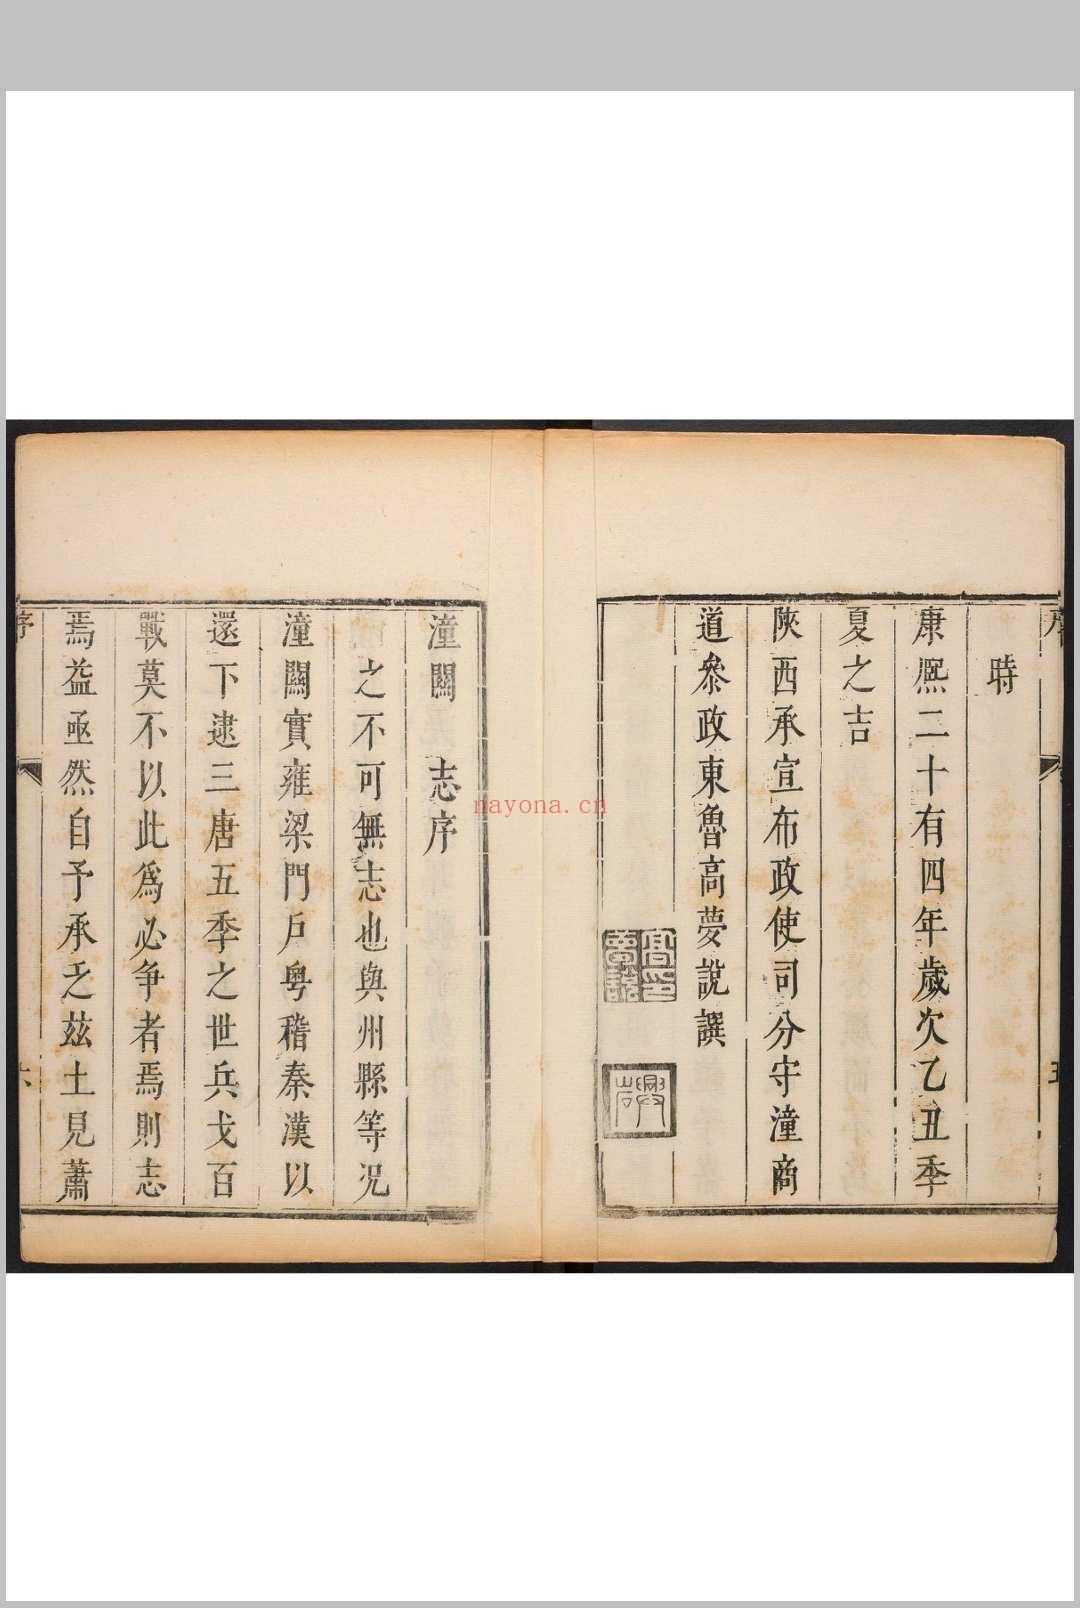 時
康熈二十有四年歲次乙丑季
夏之吉
陜西承宣布政使司分守潼商
道叅政東魯高夢說譔
高印夢說
潼關　志序
之不可無志也與州縣等况
潼關實雍梁門戶粤稽秦漢以
還下逮三唐五季之世兵戈百
戰莫不以此爲必争者焉則志
焉益亟然自予承乏兹土見蕭
序
nayona.cn